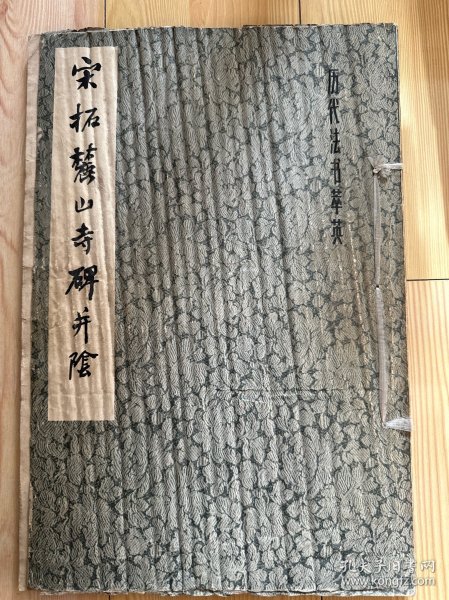 历代法书萃英
宋拓麓山寺碑并陰
孔夫子旧书网
www.kongfz.com